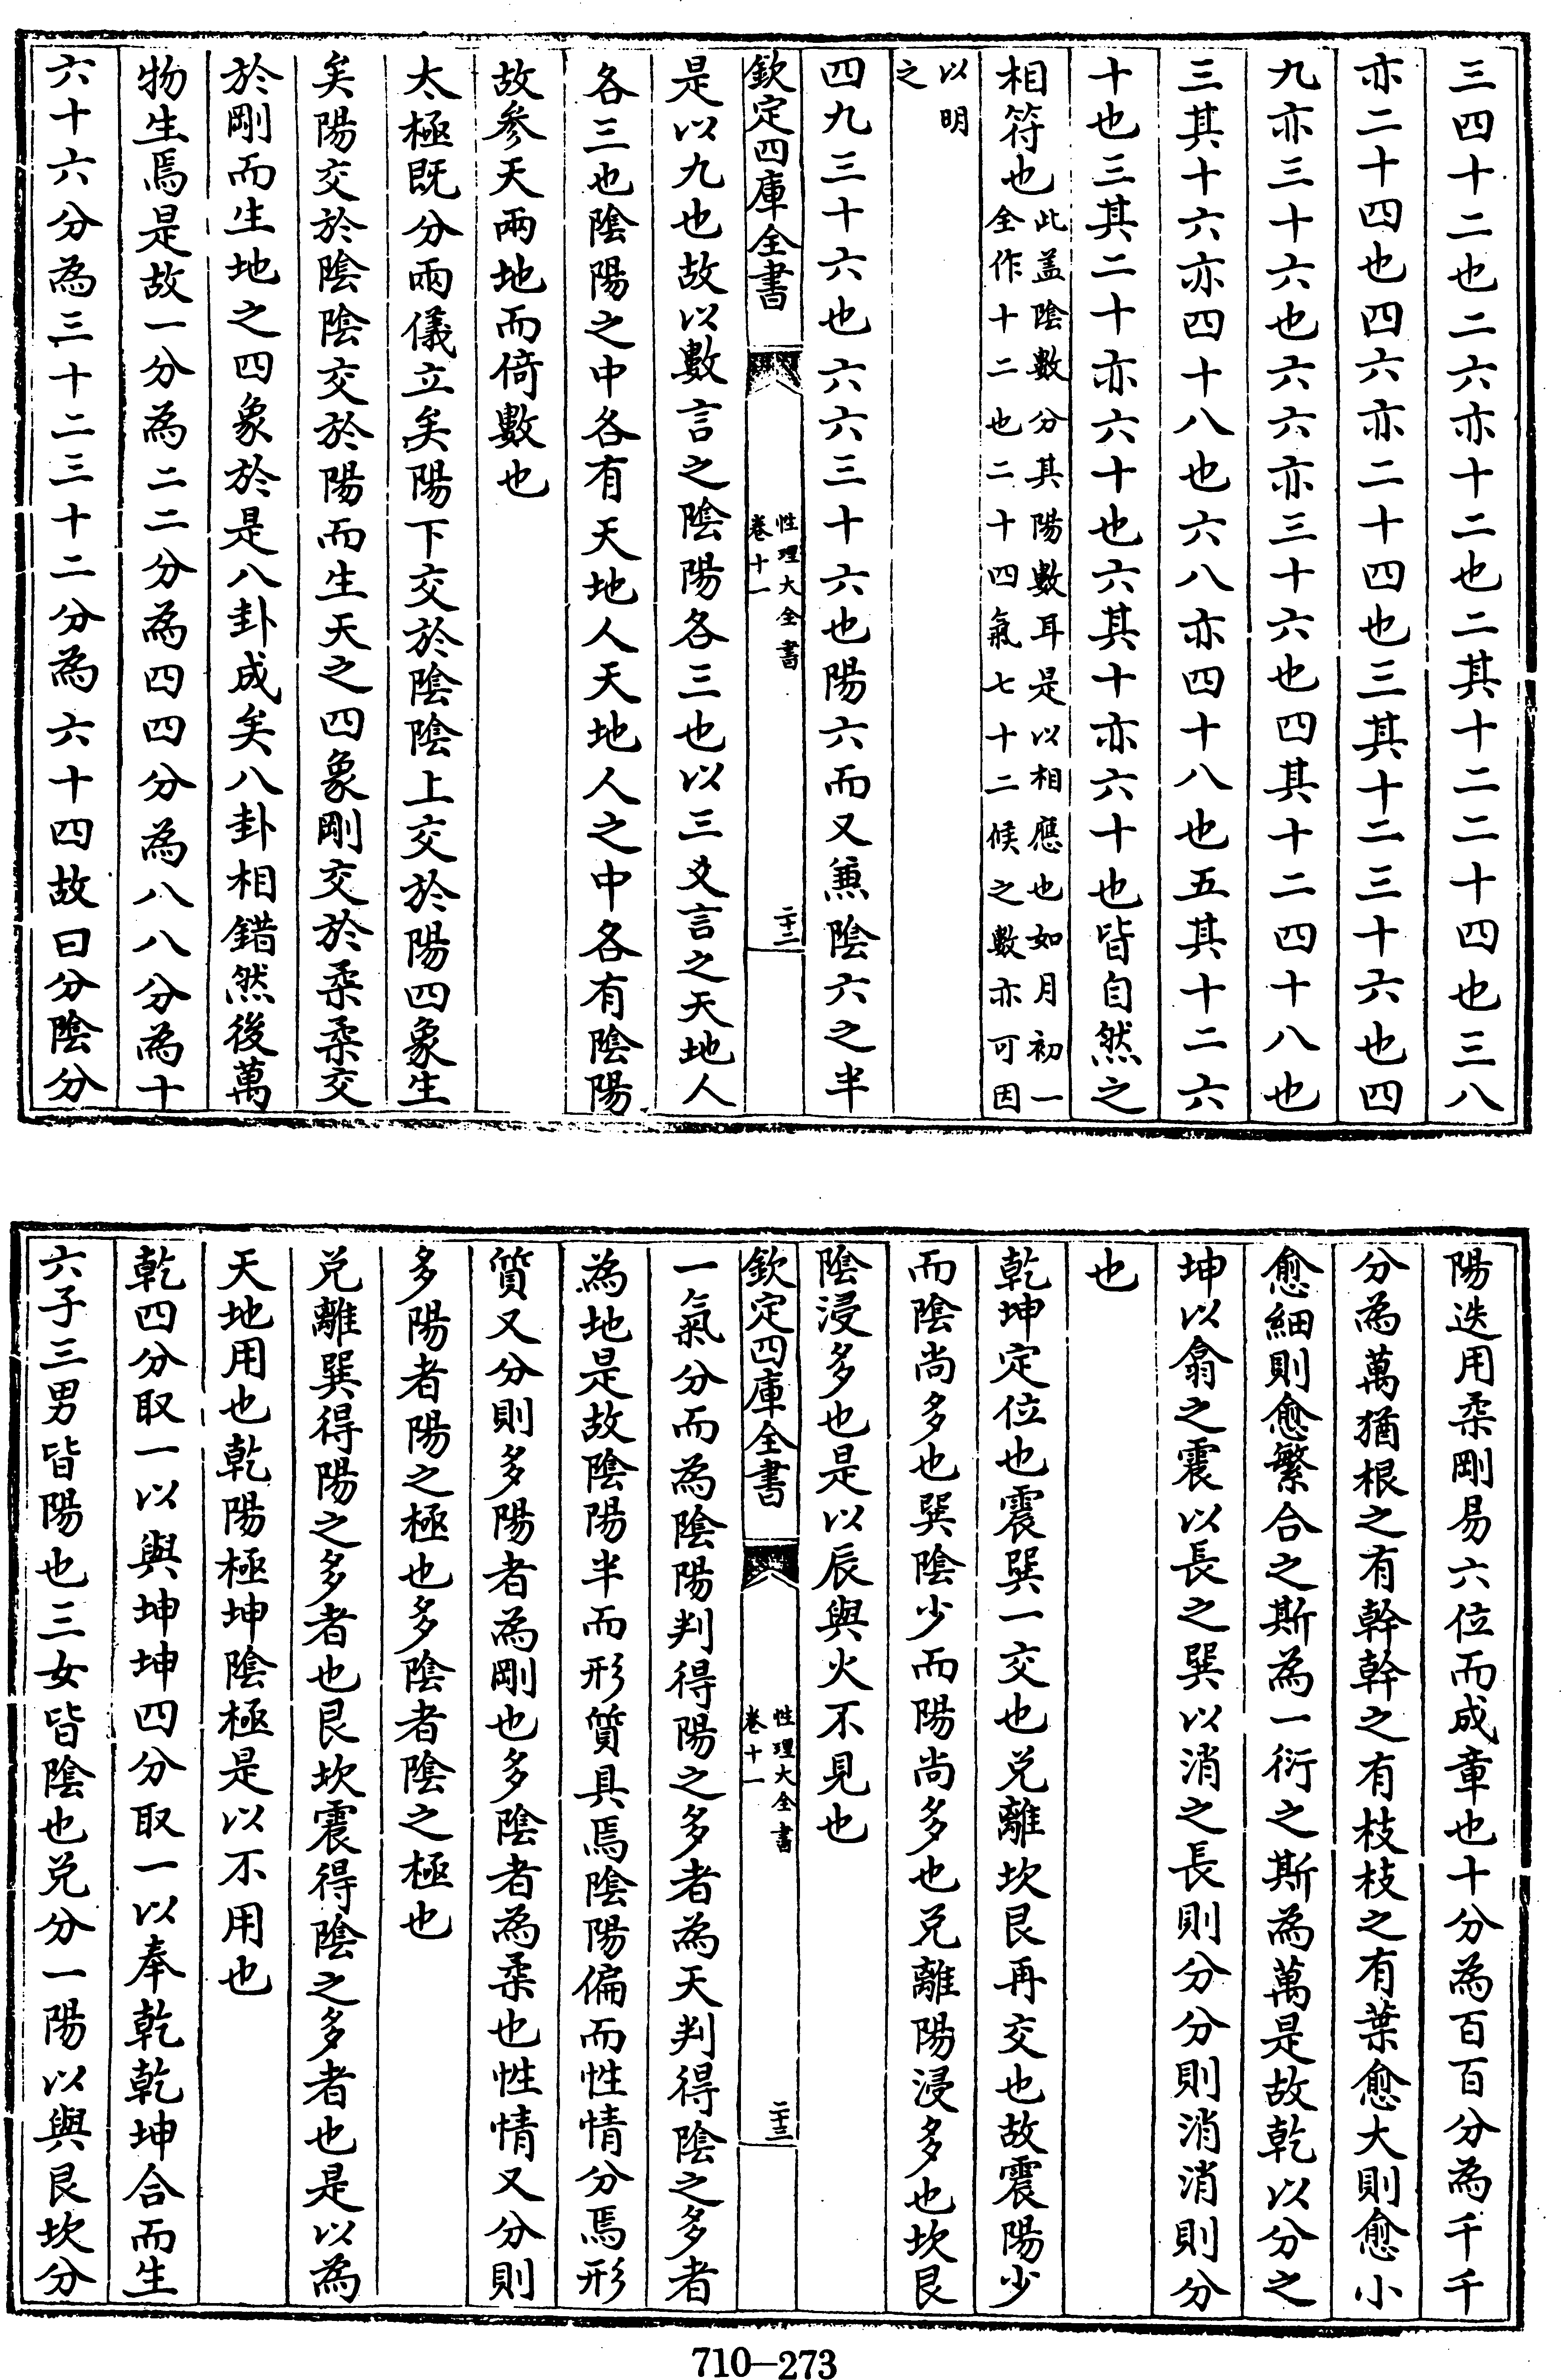 三四十二也二六亦十二也二其十二二十四也三八
亦二十四也四六亦二十四也三其十二三十六也四
九亦三十六也六六亦三十六也四其十二四十八也
三其十六亦四十八也六八亦四十八也五其十二六
十也三其二十亦六十也六其十亦六十也皆自然之
相符也此盖陰數分其陽數耳是以相應也如月初一
全作十二也二十四氣七十二候之數亦可因
以明
之
四九三十六也六六三十六也陽六而又兼陰六之半
欽定四庫全書
性理大全書
卷十一
二十二
是以九也故以數言之陰陽各三也以三爻言之天地人
各三也陰陽之中各有天地人天地人之中各有陰陽
故參天兩地而倚數也
太極既分兩儀立矣陽下交於陰陰上交於陽四象生
矣陽交於陰陰交於陽而生天之四象剛交於柔柔交
於剛而生地之四象於是八卦成矣八卦相錯然後萬
物生焉是故一分為二二分為四四分為八八分為十
六十六分為三十二三十二分為六十四故曰分陰分
陽迭用柔剛易六位而成章也十分為百百分為千千
分為萬猶根之有幹幹之有枝枝之有葉愈大則愈小
愈細則愈繁合之斯為一衍之斯為萬是故乾以分之
坤以翕之震以長之巽以消之長則分分則消消則分
也
乾坤定位也震巽一交也兌離坎艮再交也故震陽少
而陰尚多也巽陰少而陽尚多也兌離陽浸多也坎艮
陰浸多也是以辰與火不見也
欽定四庫全書
性理大全書
卷十一
二十三
一氣分而為陰陽判得陽之多者為天判得陰之多者
為地是故陰陽半而形質具焉陰陽偏而性情分焉形
質又分則多陽者為剛也多陰者為柔也性情又分則
多陽者陽之極也多陰者陰之極也
兌離巽得陽之多者也艮坎震得陰之多者也是以為
天地用也乾陽極坤陰極是以不用也
乾四分取一以與坤坤四分取一以奉乾乾坤合而生
六子三男皆陽也三女皆陰也兌分一陽以與艮坎分
710—273